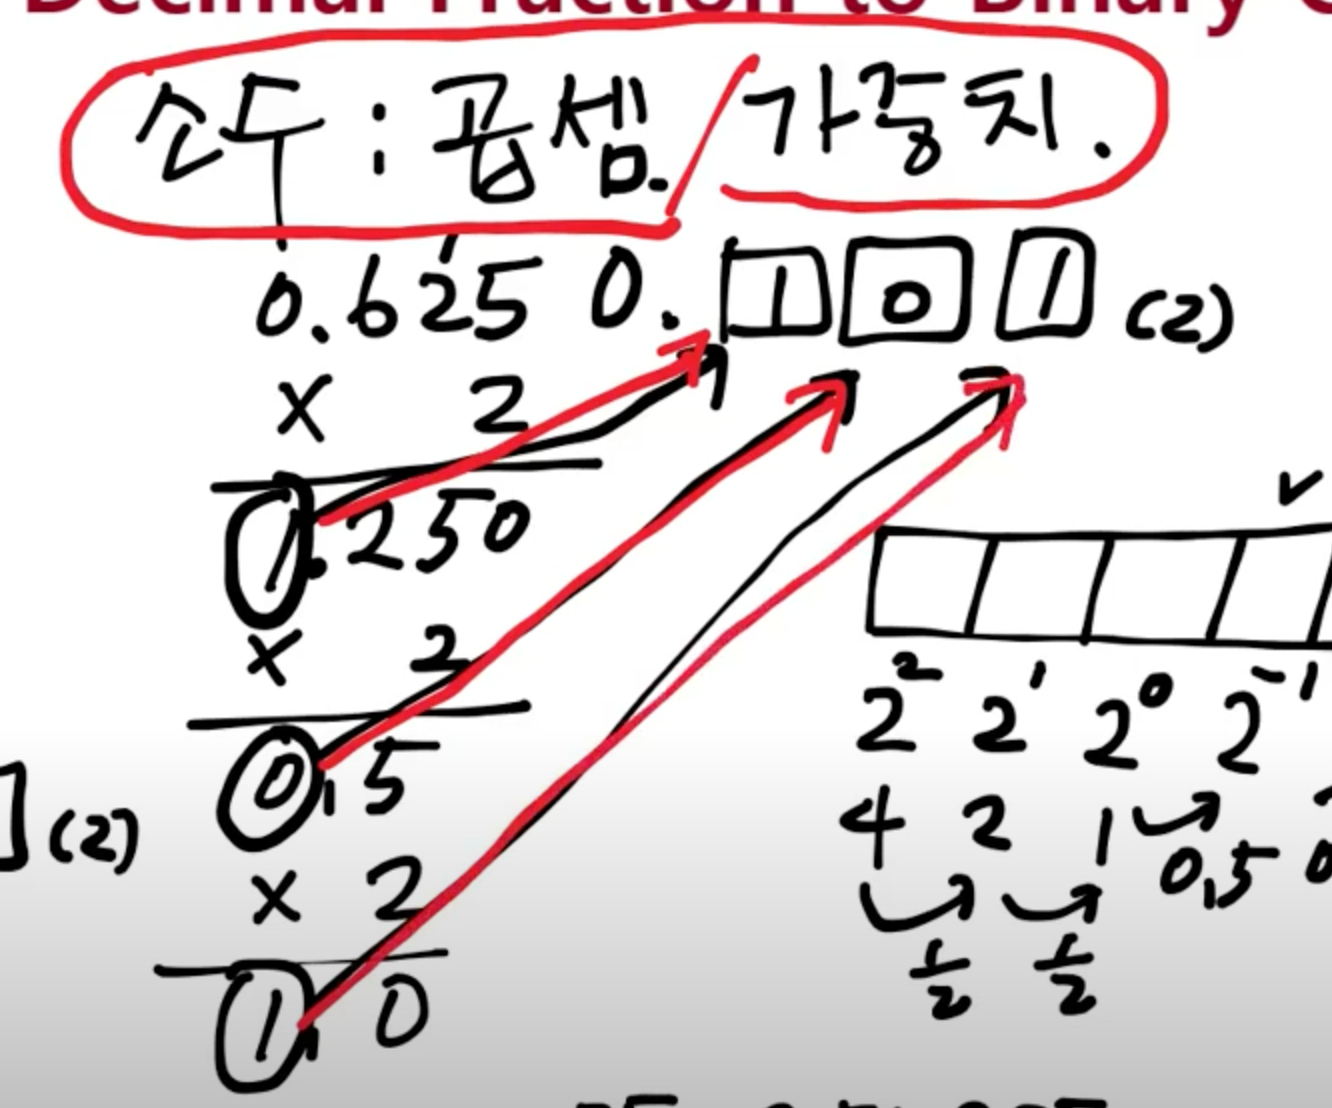 Decimal Fraction to Binary
소수 : 곱셈. / 가중치.
0.625 0.101 (2)
x 2
1.250
x 2
0.5
x 2
1.0
](2)
✓
2² 2¹ 2⁰ 2⁻¹
4 2 1 0.5
1/2 1/2